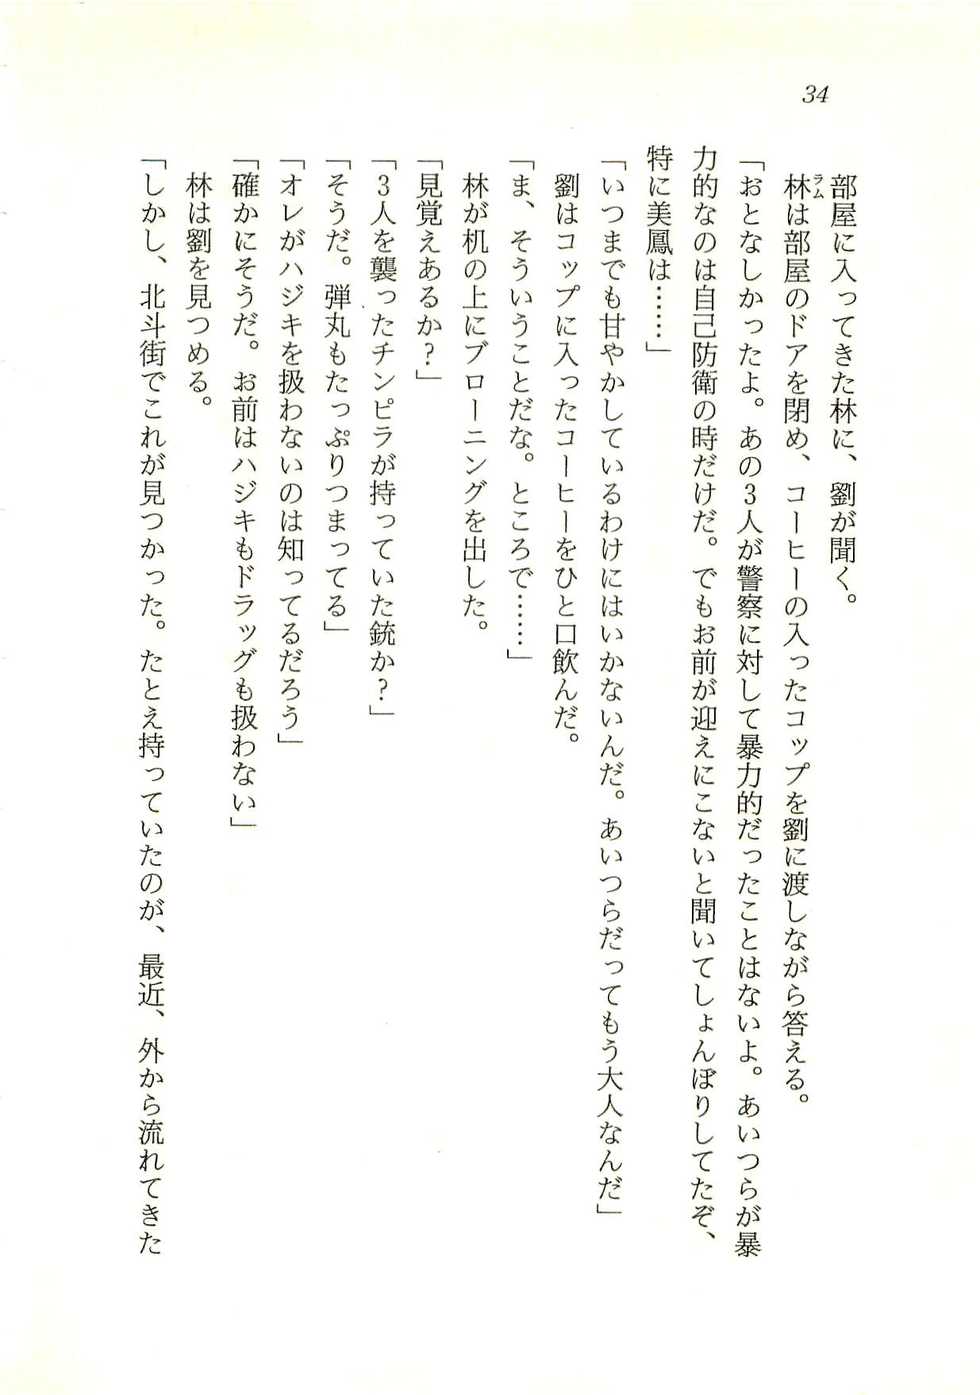 34
部屋に入ってきた林に、劉が聞く。
林は部屋のドアを閉め、コーヒーの入ったコップを劉に渡しながら答える。
ラム
「おとなしかったよ。あの3人が警察に対して暴力的だったことはないよ。あいつらが暴
力的なのは自己防衛の時だけだ。でもお前が迎えにこないと聞いてしょんぼりしてたぞ、
特に美鳳は……」
「いつまでも甘やかしているわけにはいかないんだ。あいつらだってもう大人なんだ」
劉はコップに入ったコーヒーをひと口飲んだ。
「ま、そういうことだな。ところで……」
林が机の上にブローニングを出した。
「見覚えあるか?」
「3人を襲ったチンピラが持っていた銃か?」
「そうだ。弾丸もたっぷりつまってる」
「オレがハジキを扱わないのは知ってるだろう」
「確かにそうだ。お前はハジキもドラッグも扱わない」
林は劉を見つめる。
「しかし、北斗街でこれが見つかった。たとえ持っていたのが、最近、外から流れてきた